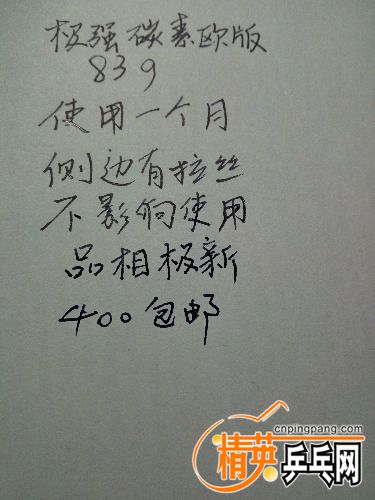 极强碳素欧版
83g
使用一个月
侧边有拉丝
不影响使用
品相极新
400包邮
cnpingpang.com
精英乒乓网